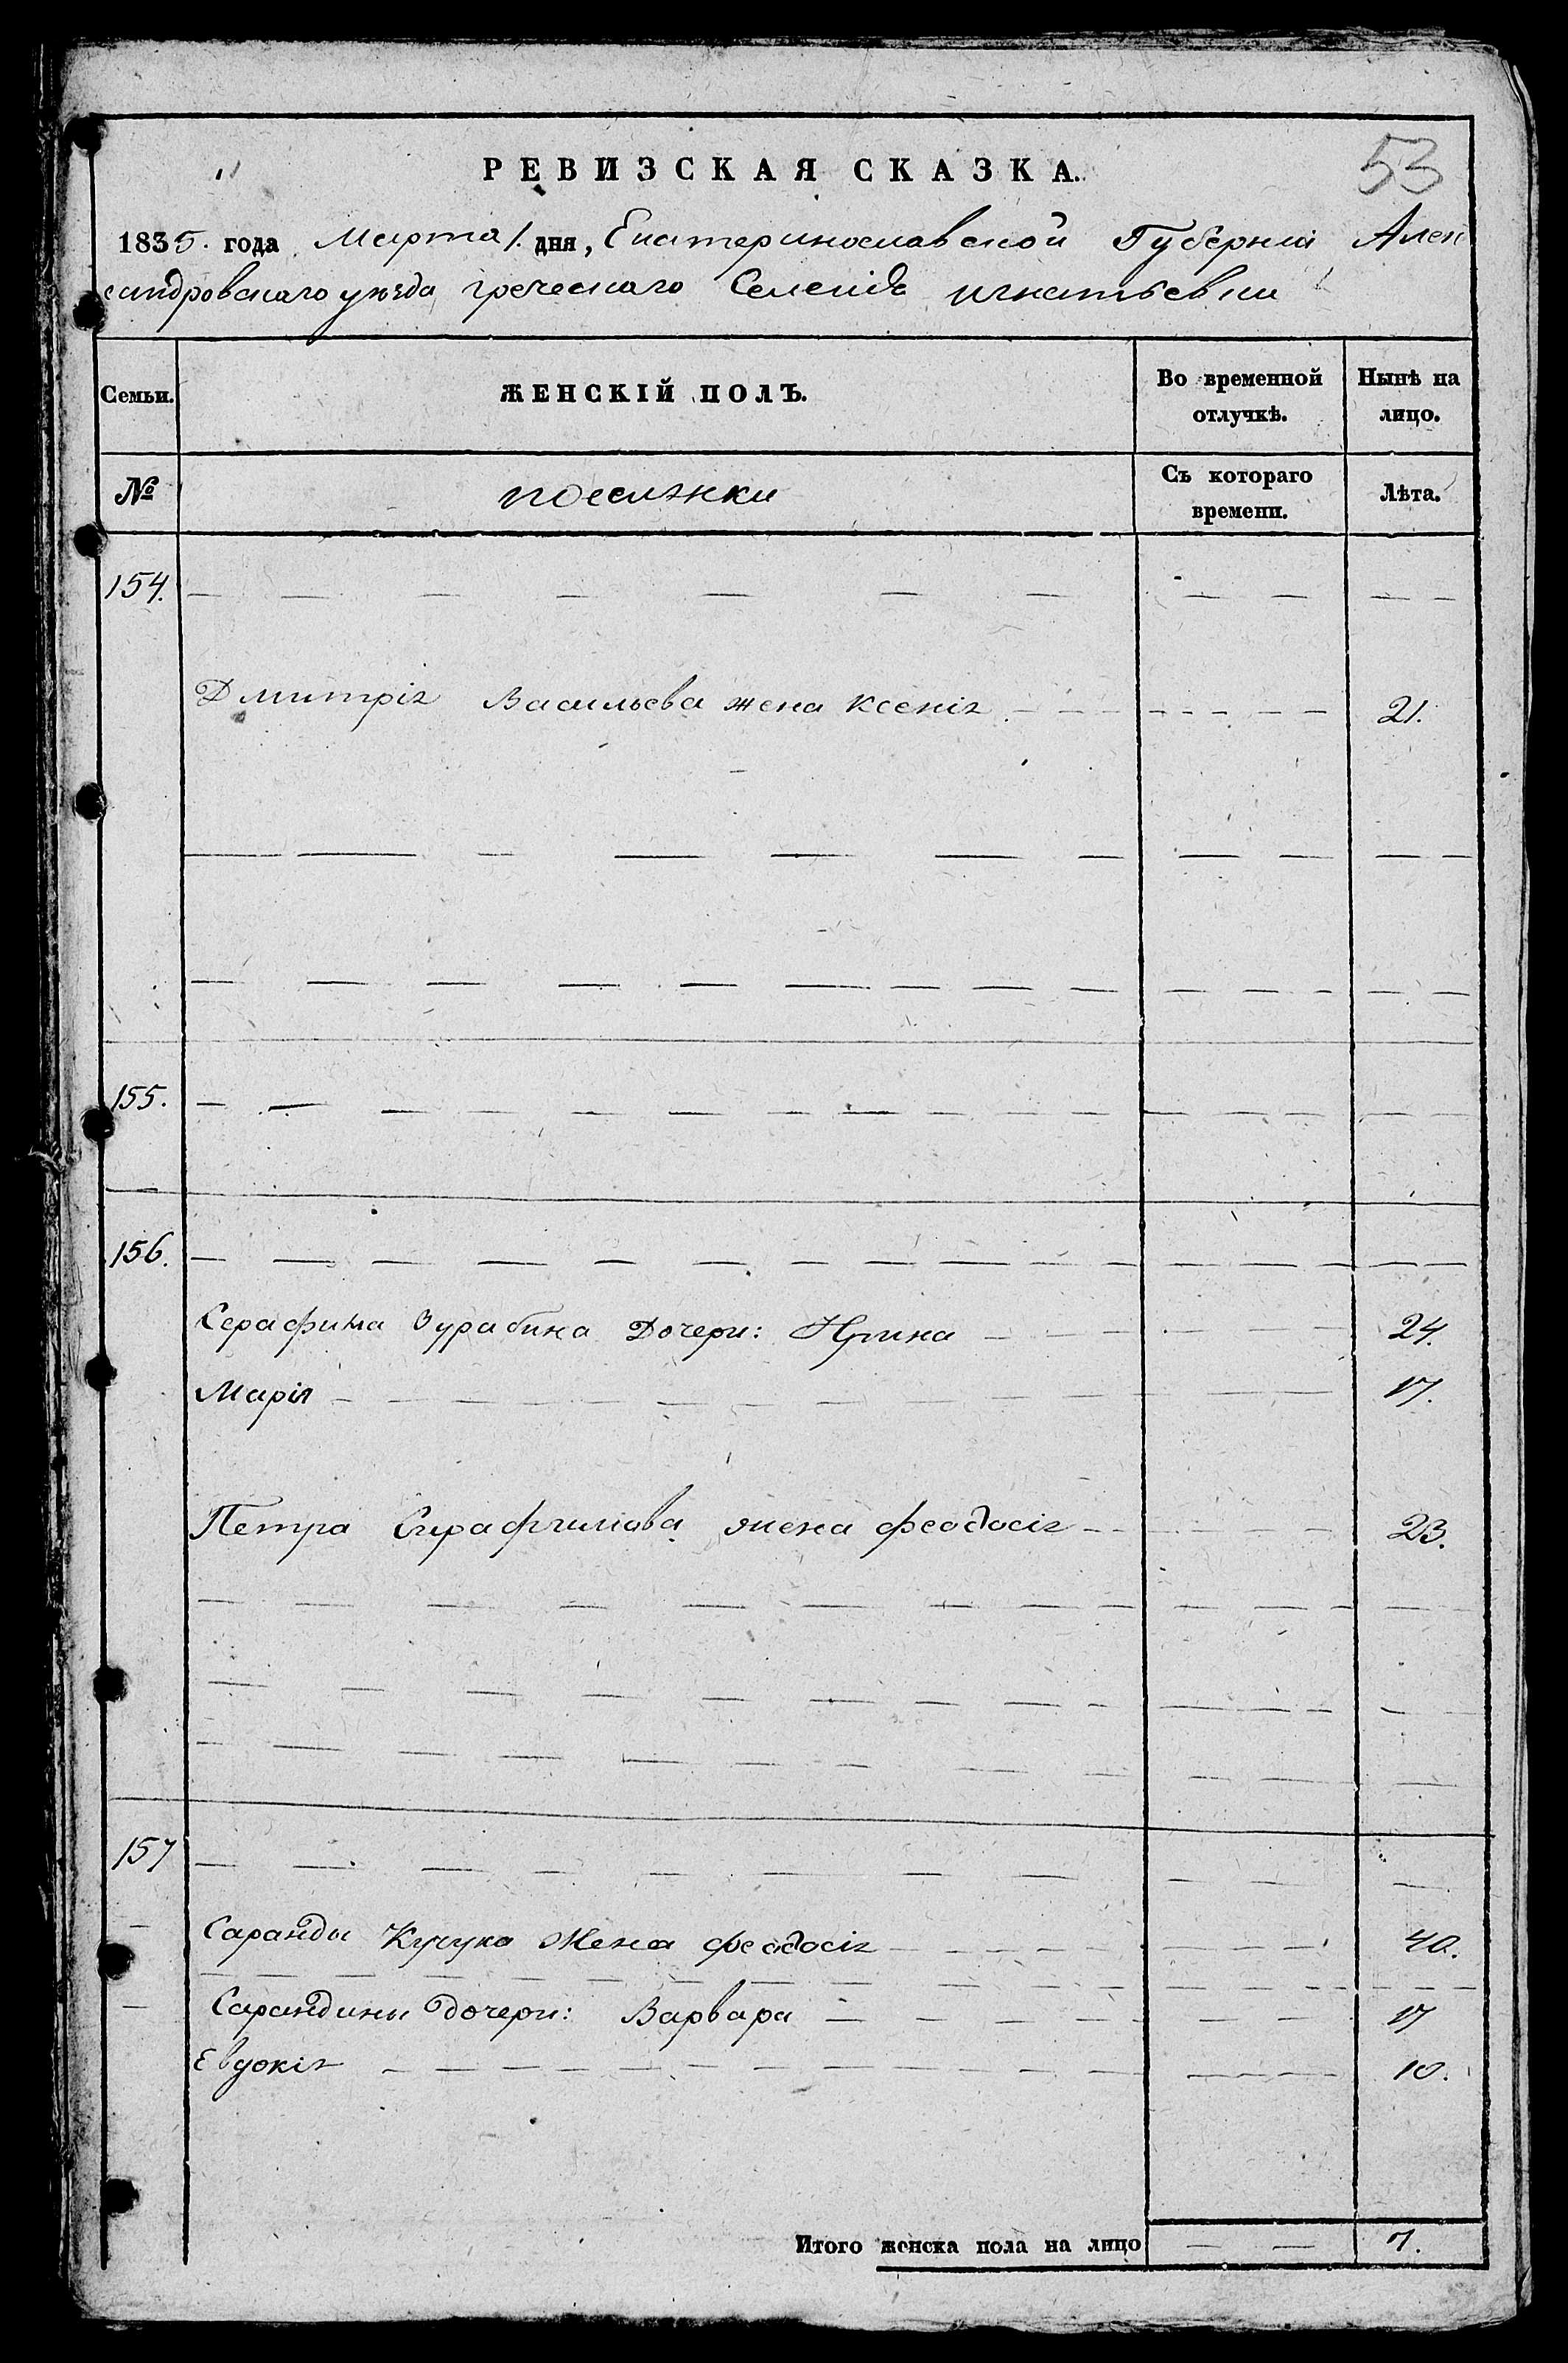 РЕВИЗСКАЯ СКАЗКА.
53
1835. года Марта 1. дня, Екатеринославской Губернии Алек
сандровскаго уезда греческаго Селенія игнатьевки
Семьи.
ЖЕНСКІЙ ПОЛЪ.
Во временной отлучкѣ.
Нынѣ на лицо.
№
поселянки
Съ котораго времени.
Лѣта.
154.
Дмитрія Васильева жена Ксенія 21.
155.
156.
Серафима Зурабина Дочери: Ирина 24.
Марія 17.
Петра Сирафимова жена феодосія 23.
157
Саранды Кучука Жена феодосія 40.
Сарандины дочери: Варвара 17
Евдокія 10.
Итого женска пола на лицо 7.